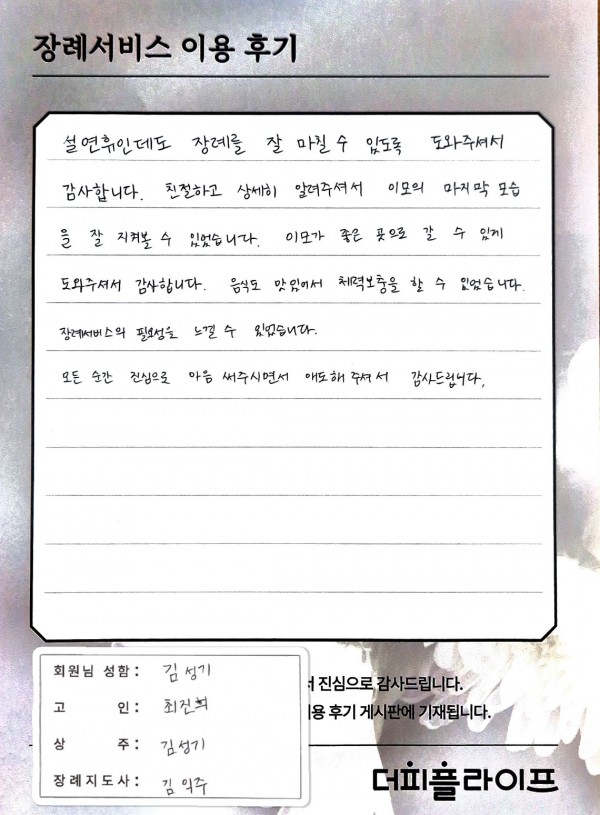 장례서비스 이용 후기
설연휴인데도 장례를 잘 마칠 수 있도록 도와주셔서
감사합니다. 친절하고 상세히 알려주셔서 이모의 마지막 모습
을 잘 지켜볼 수 있었습니다. 이모가 좋은 곳으로 갈 수 있게
도와주셔서 감사합니다. 음식도 맛있어서 체력보충을 할 수 있었습니다.
장례서비스의 필요성을 느낄 수 있었습니다.
모든 순간 진심으로 마음 써주시면서 애도해 주셔서 감사드립니다.
회원님 성함 : 김성기
고 인 : 최진희
상 주 : 김성기
장례지도사 : 김익주
진심으로 감사드립니다.
용 후기 게시판에 기재됩니다.
더피플라이프